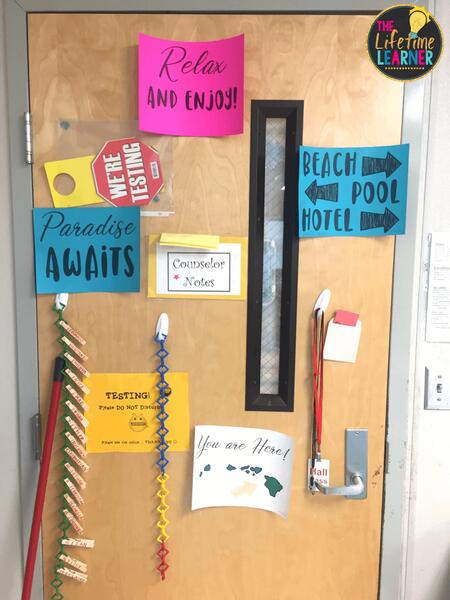 The
Lifetime
LEARNER
Relax
AND ENJOY!
WE'RE
TESTING
BEACH
POOL
HOTEL
Paradise
AWAITS
Counselor
Notes
TESTING!
Please DO NOT Disturb
You are Here!
Hall
Pass